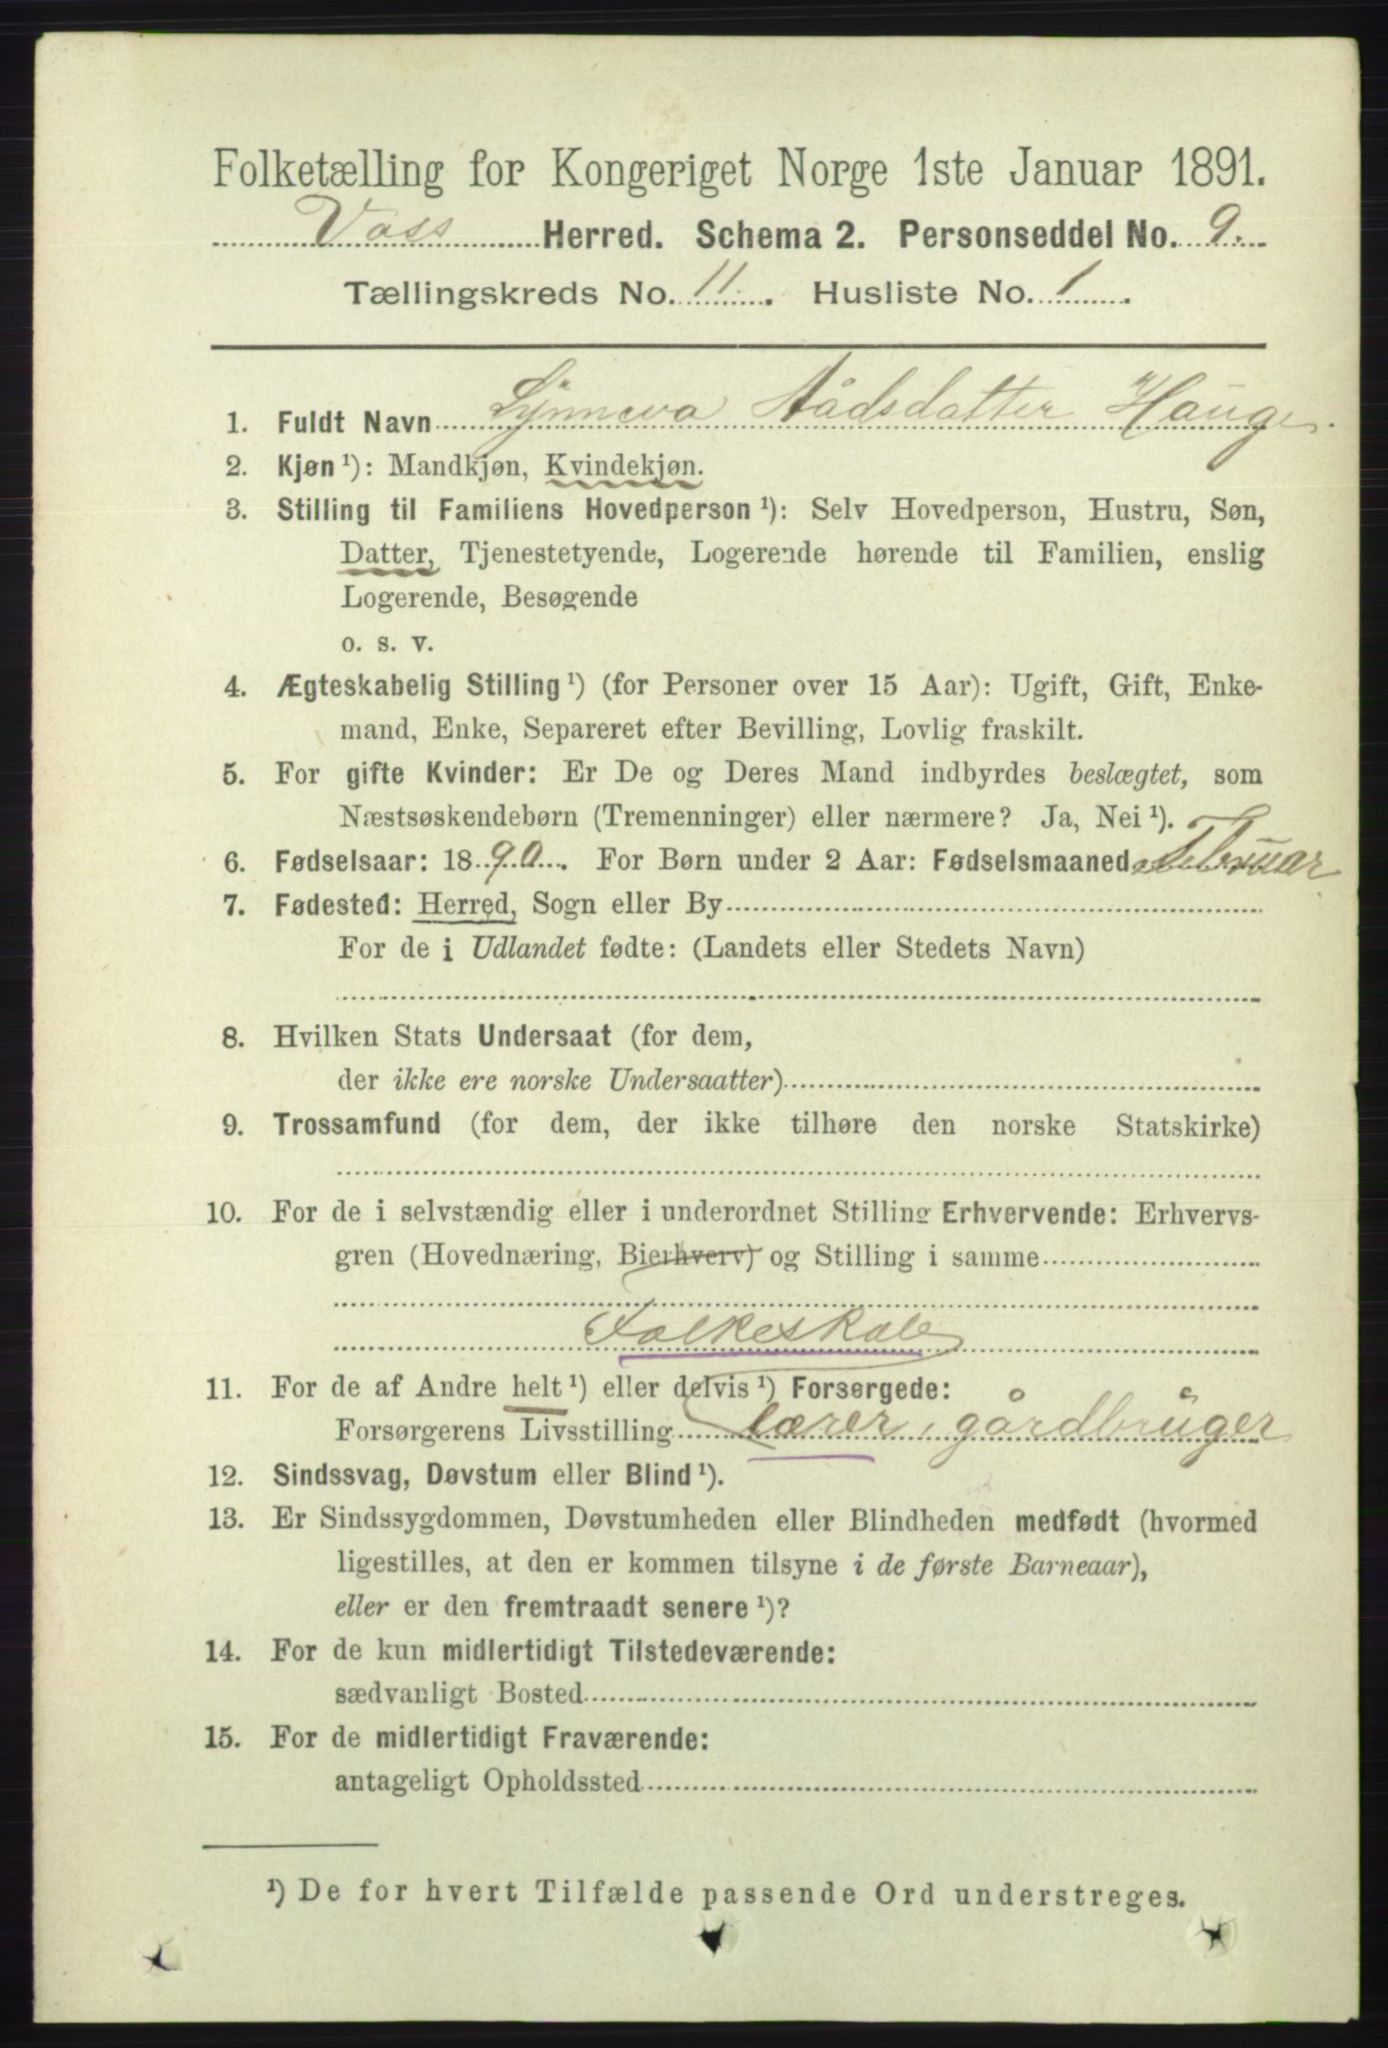 Folketælling for Kongeriget Norge 1ste Januar 1891.
Voss Herred. Schema 2. Personseddel No. 9.
Tællingskreds No. 11. Husliste No. 1.
1. Fuldt Navn Synneva Aådsdatter Hauge.
2. Kjøn ¹): Mandkjøn, Kvindekjøn.
3. Stilling til Familiens Hovedperson ¹): Selv Hovedperson, Hustru, Søn,
Datter, Tjenestetyende, Logerende hørende til Familien, enslig
Logerende, Besøgende
o. s. v.
4. Ægteskabelig Stilling ¹) (for Personer over 15 Aar): Ugift, Gift, Enke-
mand, Enke, Separeret efter Bevilling, Lovlig fraskilt.
5. For gifte Kvinder: Er De og Deres Mand indbyrdes beslægtet, som
Næstsøskendebørn (Tremenninger) eller nærmere? Ja, Nei ¹).
6. Fødselsaar: 1890. For Børn under 2 Aar: Fødselsmaaned Februar
7. Fødested: Herred, Sogn eller By
For de i Udlandet fødte: (Landets eller Stedets Navn)
8. Hvilken Stats Undersaat (for dem,
der ikke ere norske Undersaatter)
9. Trossamfund (for dem, der ikke tilhøre den norske Statskirke)
10. For de i selvstændig eller i underordnet Stilling Erhvervende: Erhvervs-
gren (Hovednæring, Bierhverv) og Stilling i samme
Folkeskole
11. For de af Andre helt ¹) eller delvis ¹) Forsørgede:
Forsørgerens Livsstilling lærer, gårdbruger
12. Sindssvag, Døvstum eller Blind ¹).
13. Er Sindssygdommen, Døvstumheden eller Blindheden medfødt (hvormed
ligestilles, at den er kommen tilsyne i de første Barneaar),
eller er den fremtraadt senere ¹)?
14. For de kun midlertidigt Tilstedeværende:
sædvanligt Bosted
15. For de midlertidigt Fraværende:
antageligt Opholdssted
¹) De for hvert Tilfælde passende Ord understreges.